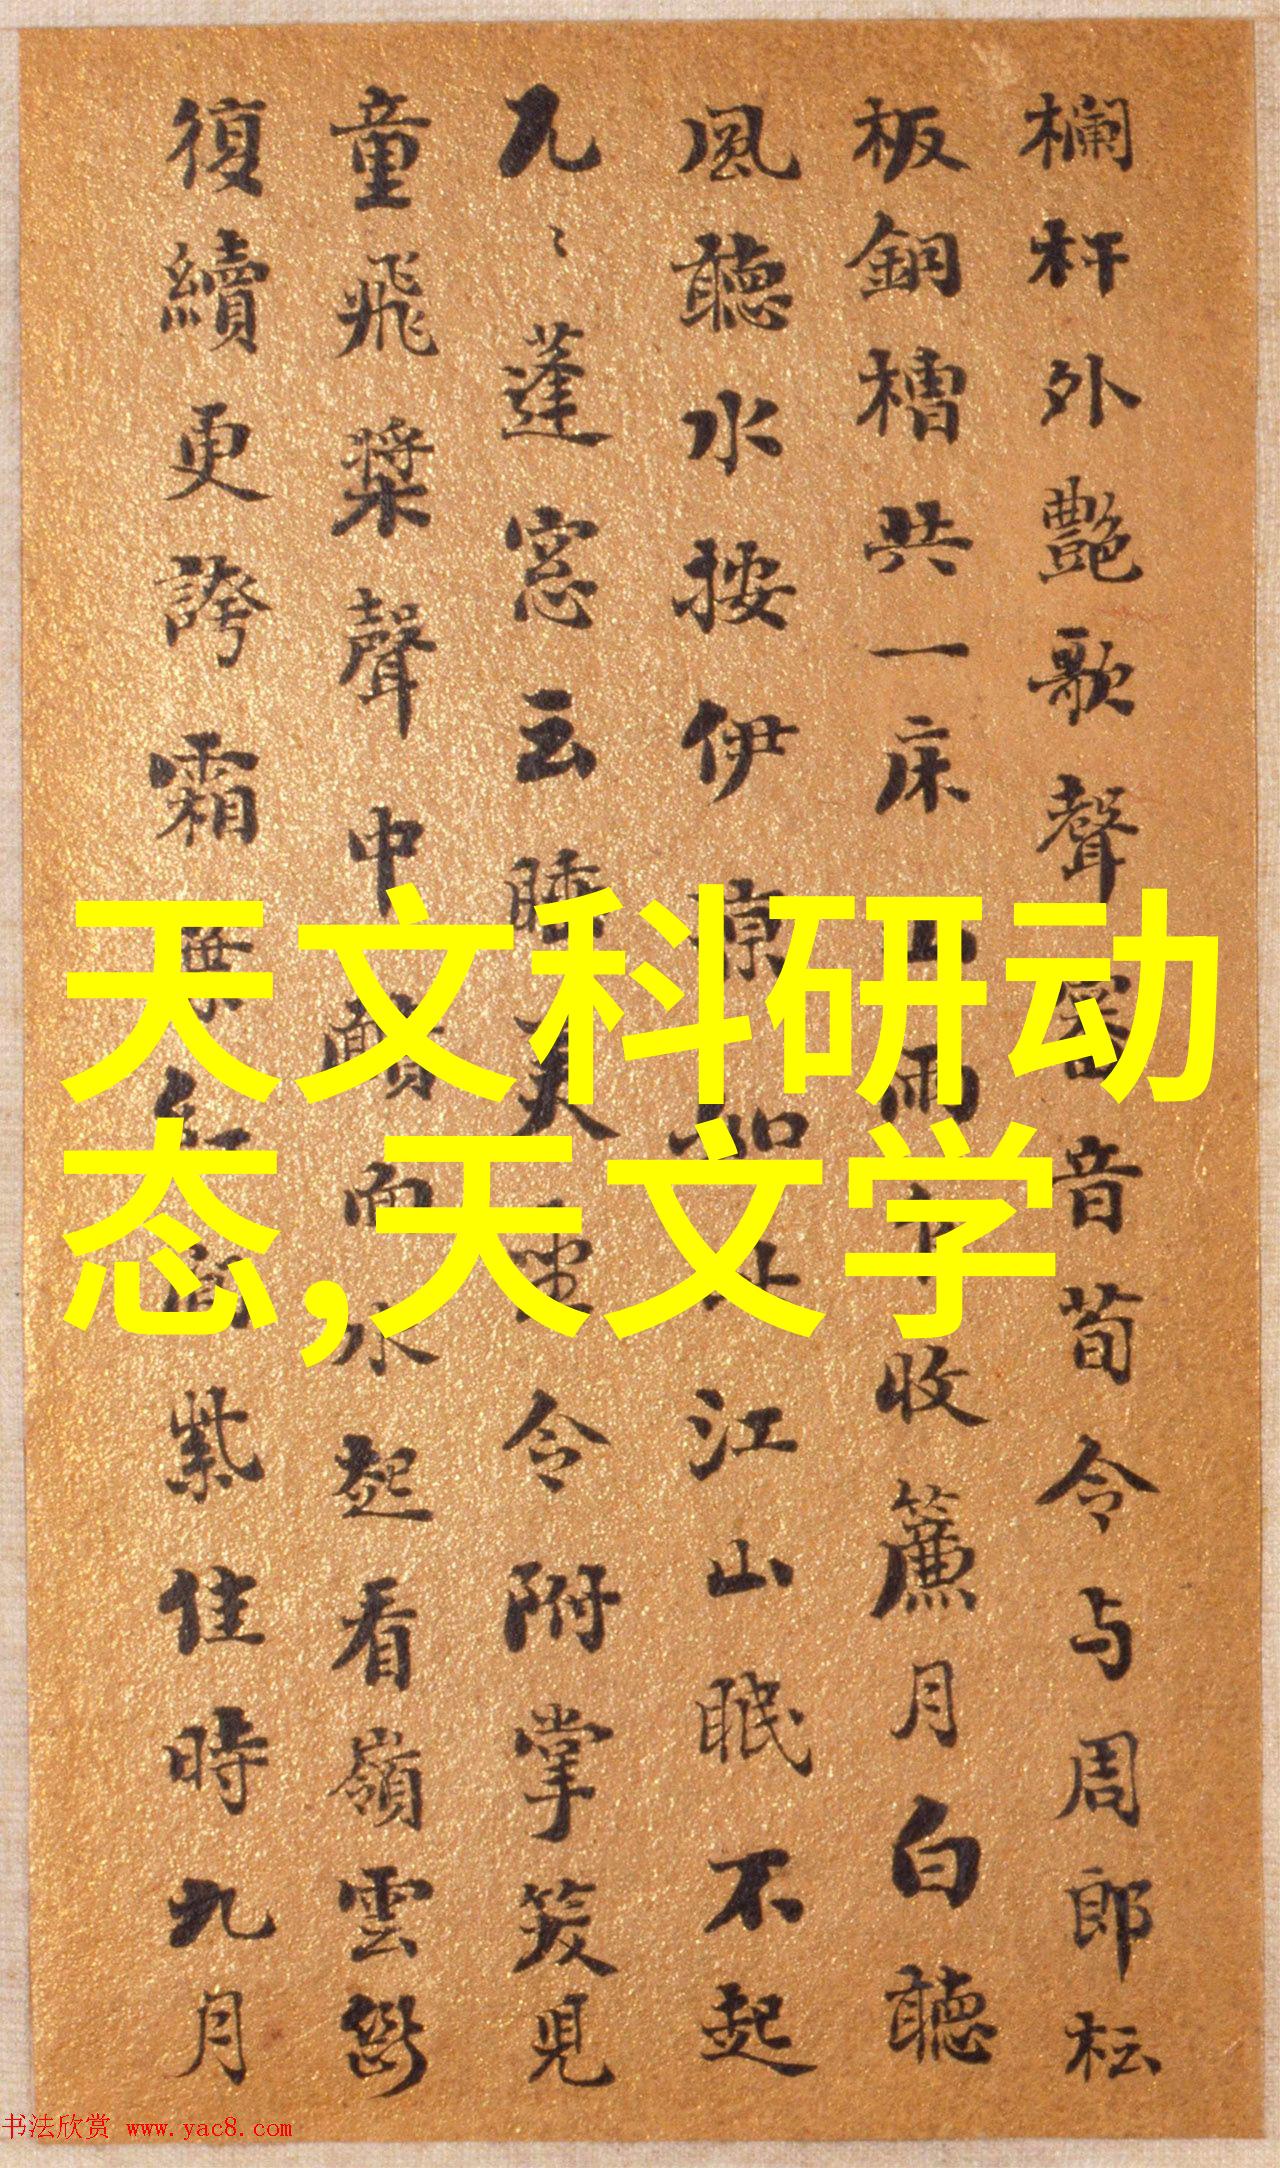 欄杆外艷歌聲
音荀令与周郎枟
板銅槽共一床
雨
收簾月白聽
風聽水按伊涼
江山眠不起
凡〻蓬窓云睡
令附掌笑見
童飛槳聲中
面水起看嶺雲
復續更誇霜
紫佳時九月
天文科研动
态,天文学
书法欣赏 www.yac8.com